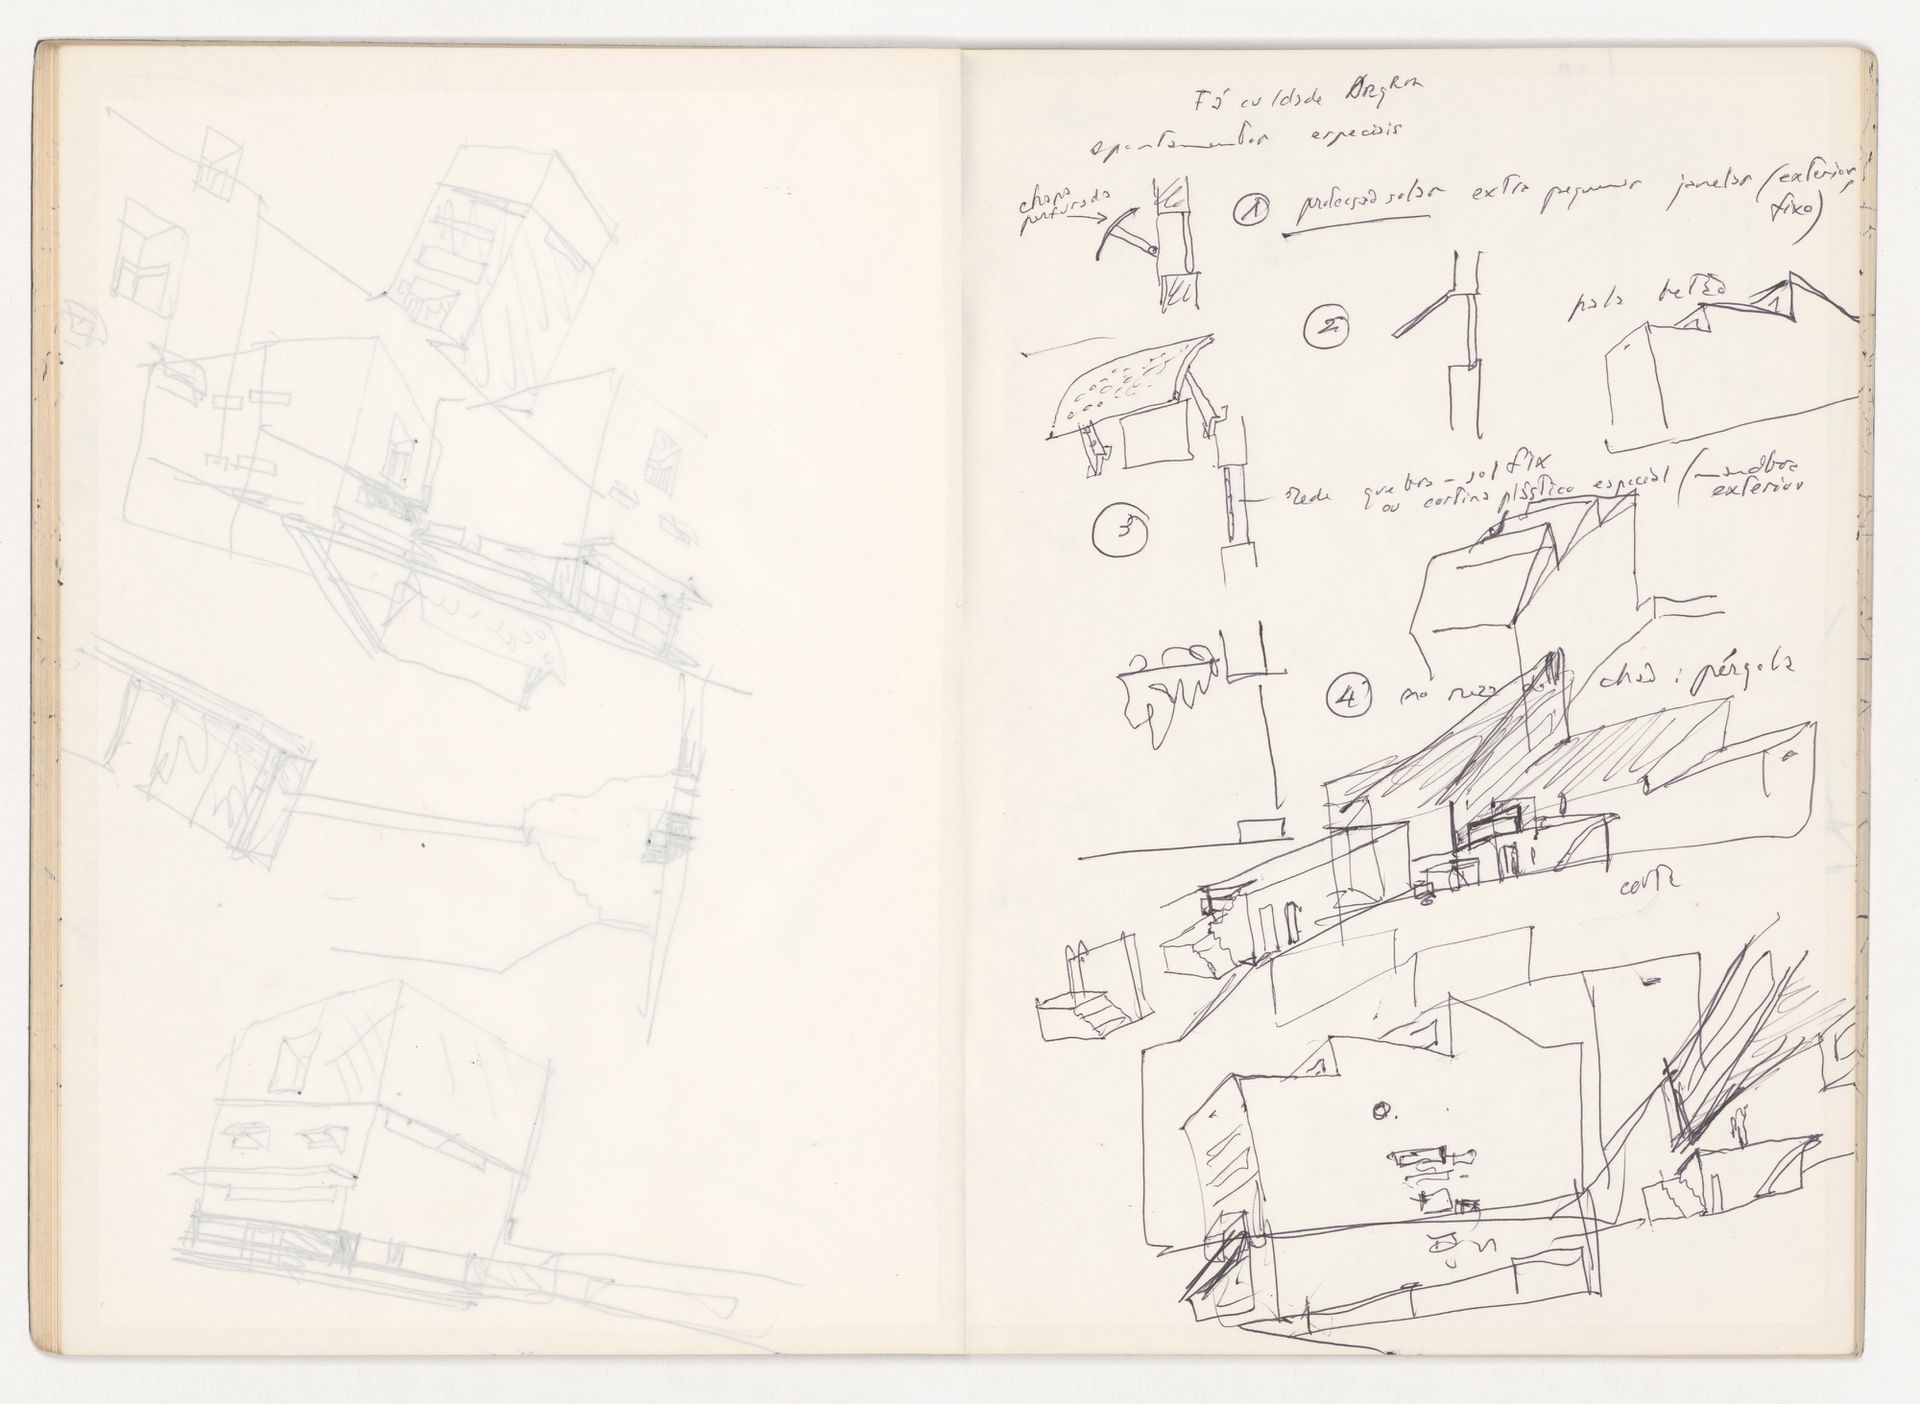 Faculdade Arqra
apontamentos especiais
chapa
perfurada
① protecção solar extra pequenas janelas (exterior,
fixo)
②
pala betão
③
Rede quebra-sol fix
ou cortina plástico especial (
exterior
④ no chão: pérgola
corte